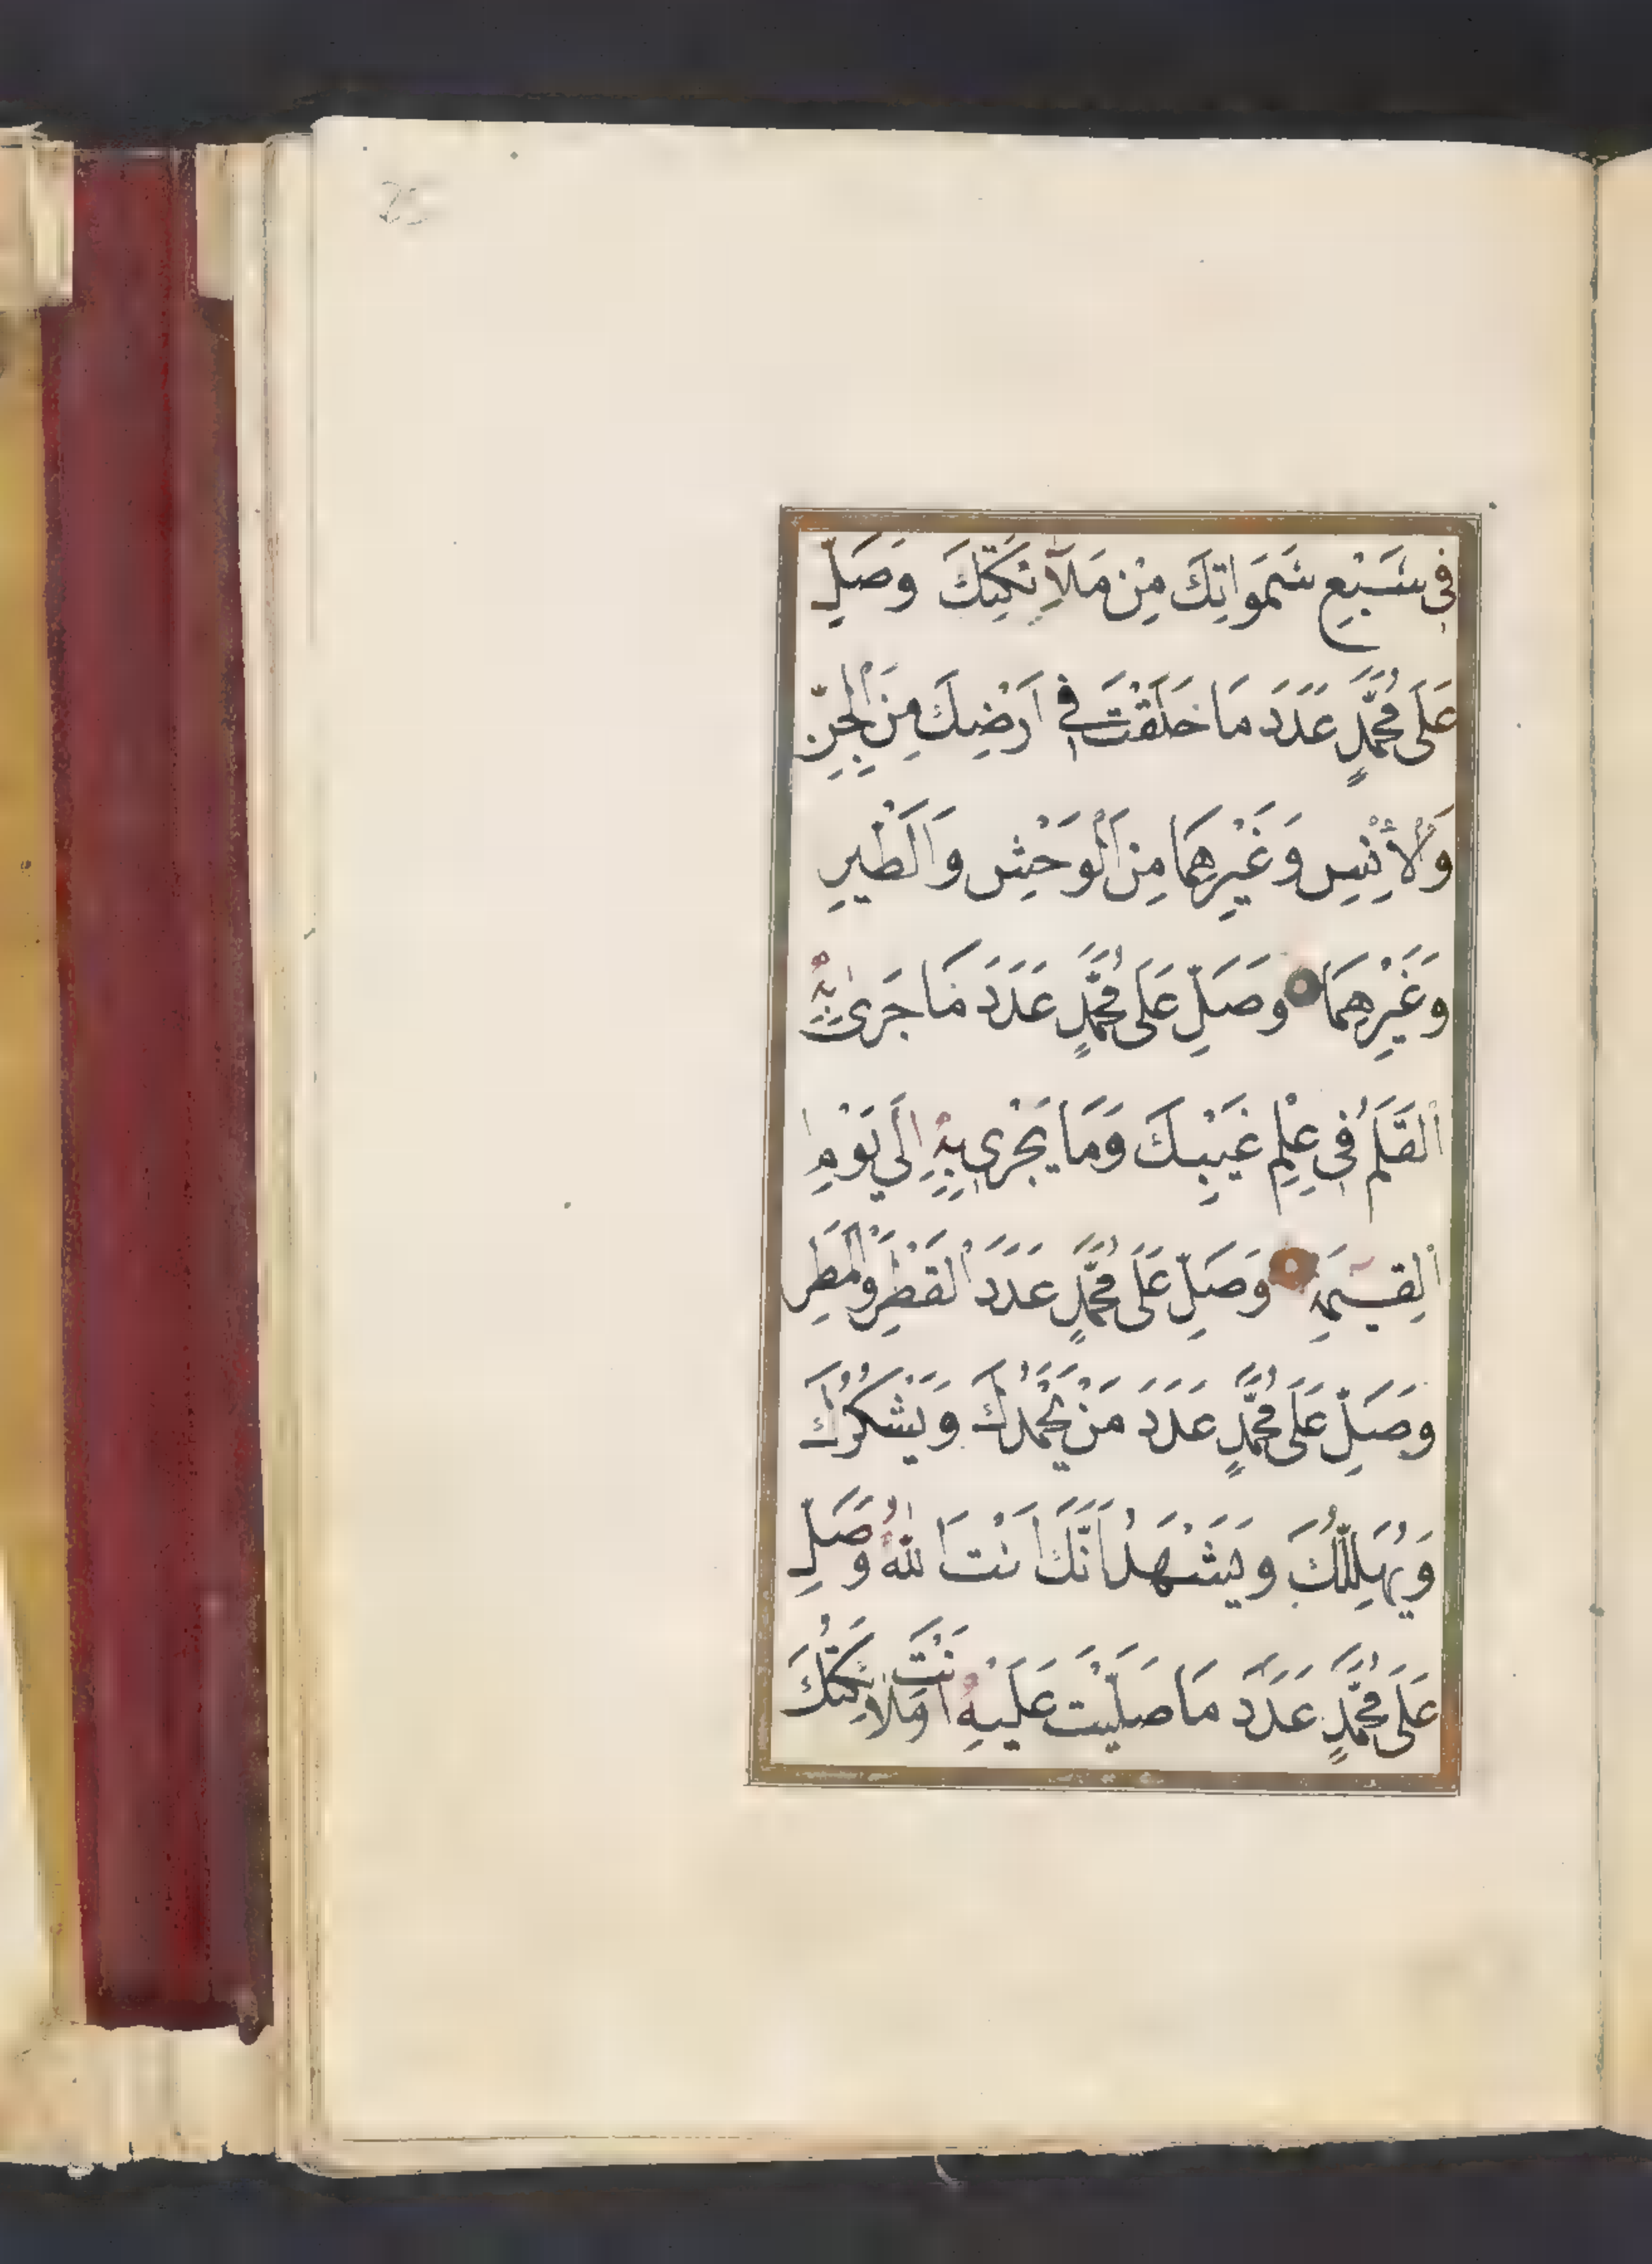 25
فِى سَبْعِ سَمَوَاتِكَ مِنْ مَلَآئِكَتِكَ وَصَلِّ
عَلَى مُحَمَّدٍ عَدَدَ مَا خَلَقْتَ فِى اَرْضِكَ مِنَ الْجِنِّ
وَالْاِنْسِ وَغَيْرِهِمَا مِنَ الْوَحْشِ وَالطَّيْرِ
وَغَيْرِهِمَا وَصَلِّ عَلَى مُحَمَّدٍ عَدَدَ مَا جَرٰى بِهِ
الْقَلَمُ فِى عِلْمِ غَيْبِكَ وَمَا يَجْرِى بِهِ اِلَى يَوْمِ
الْقِيٰمَةِ وَصَلِّ عَلَى مُحَمَّدٍ عَدَدَ الْقَطْرِ وَالْمَطَرِ
وَصَلِّ عَلَى مُحَمَّدٍ عَدَدَ مَنْ يَحْمَدُكَ وَيَشْكُرُكَ
وَيُهَلِّلُكَ وَيَشْهَدُ اَنَّكَ اَنْتَ اللّٰهُ وَصَلِّ
عَلَى مُحَمَّدٍ عَدَدَ مَا صَلَّيْتَ عَلَيْهِ اَنْتَ وَمَلَائِكَتُكَ